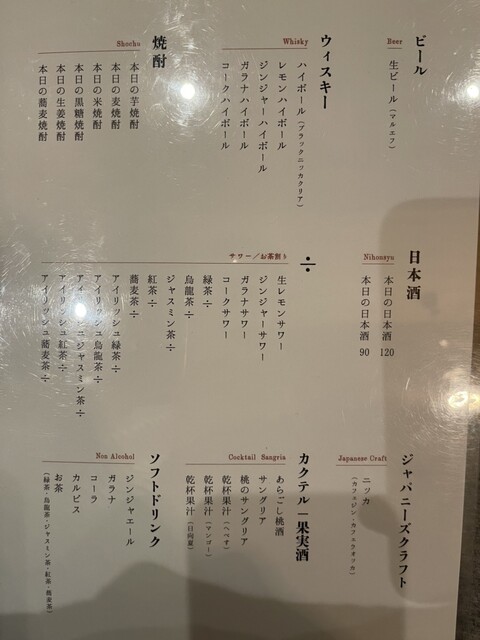 ビール
Beer
生ビール(マルエフ)
ウィスキー
Whisky
ハイボール(ブラックニッカクリア)
レモンハイボール
ジンジャーハイボール
ガラナハイボール
コークハイボール
焼酎
Shochu
本日の芋焼酎
本日の麦焼酎
本日の米焼酎
本日の黒糖焼酎
本日の生姜焼酎
本日の蕎麦焼酎
日本酒
Nihonsyu
本日の日本酒 120
本日の日本酒 90
÷
サワー/お茶割り
生レモンサワー
ジンジャーサワー
ガラナサワー
コークサワー
緑茶÷
烏龍茶÷
ジャスミン茶÷
紅茶÷
蕎麦茶÷
アイリッシュ緑茶÷
アイリッシュ烏龍茶÷
アイリッシュジャスミン茶÷
アイリッシュ紅茶÷
アイリッシュ蕎麦茶÷
ジャパニーズクラフト
Japanese Craft
ニッカ
(カフェジン・カフェウオッカ)
カクテル−果実酒
Cocktail Sangria
あらごし桃酒
サングリア
桃のサングリア
乾杯果汁÷(へべす)
乾杯果汁÷(マンゴー)
乾杯果汁÷(日向夏)
ソフトドリンク
Non Alcohol
ジンジャエール
ガラナ
コーラ
カルピス
お茶
(緑茶・烏龍茶・ジャスミン茶・紅茶・蕎麦茶)